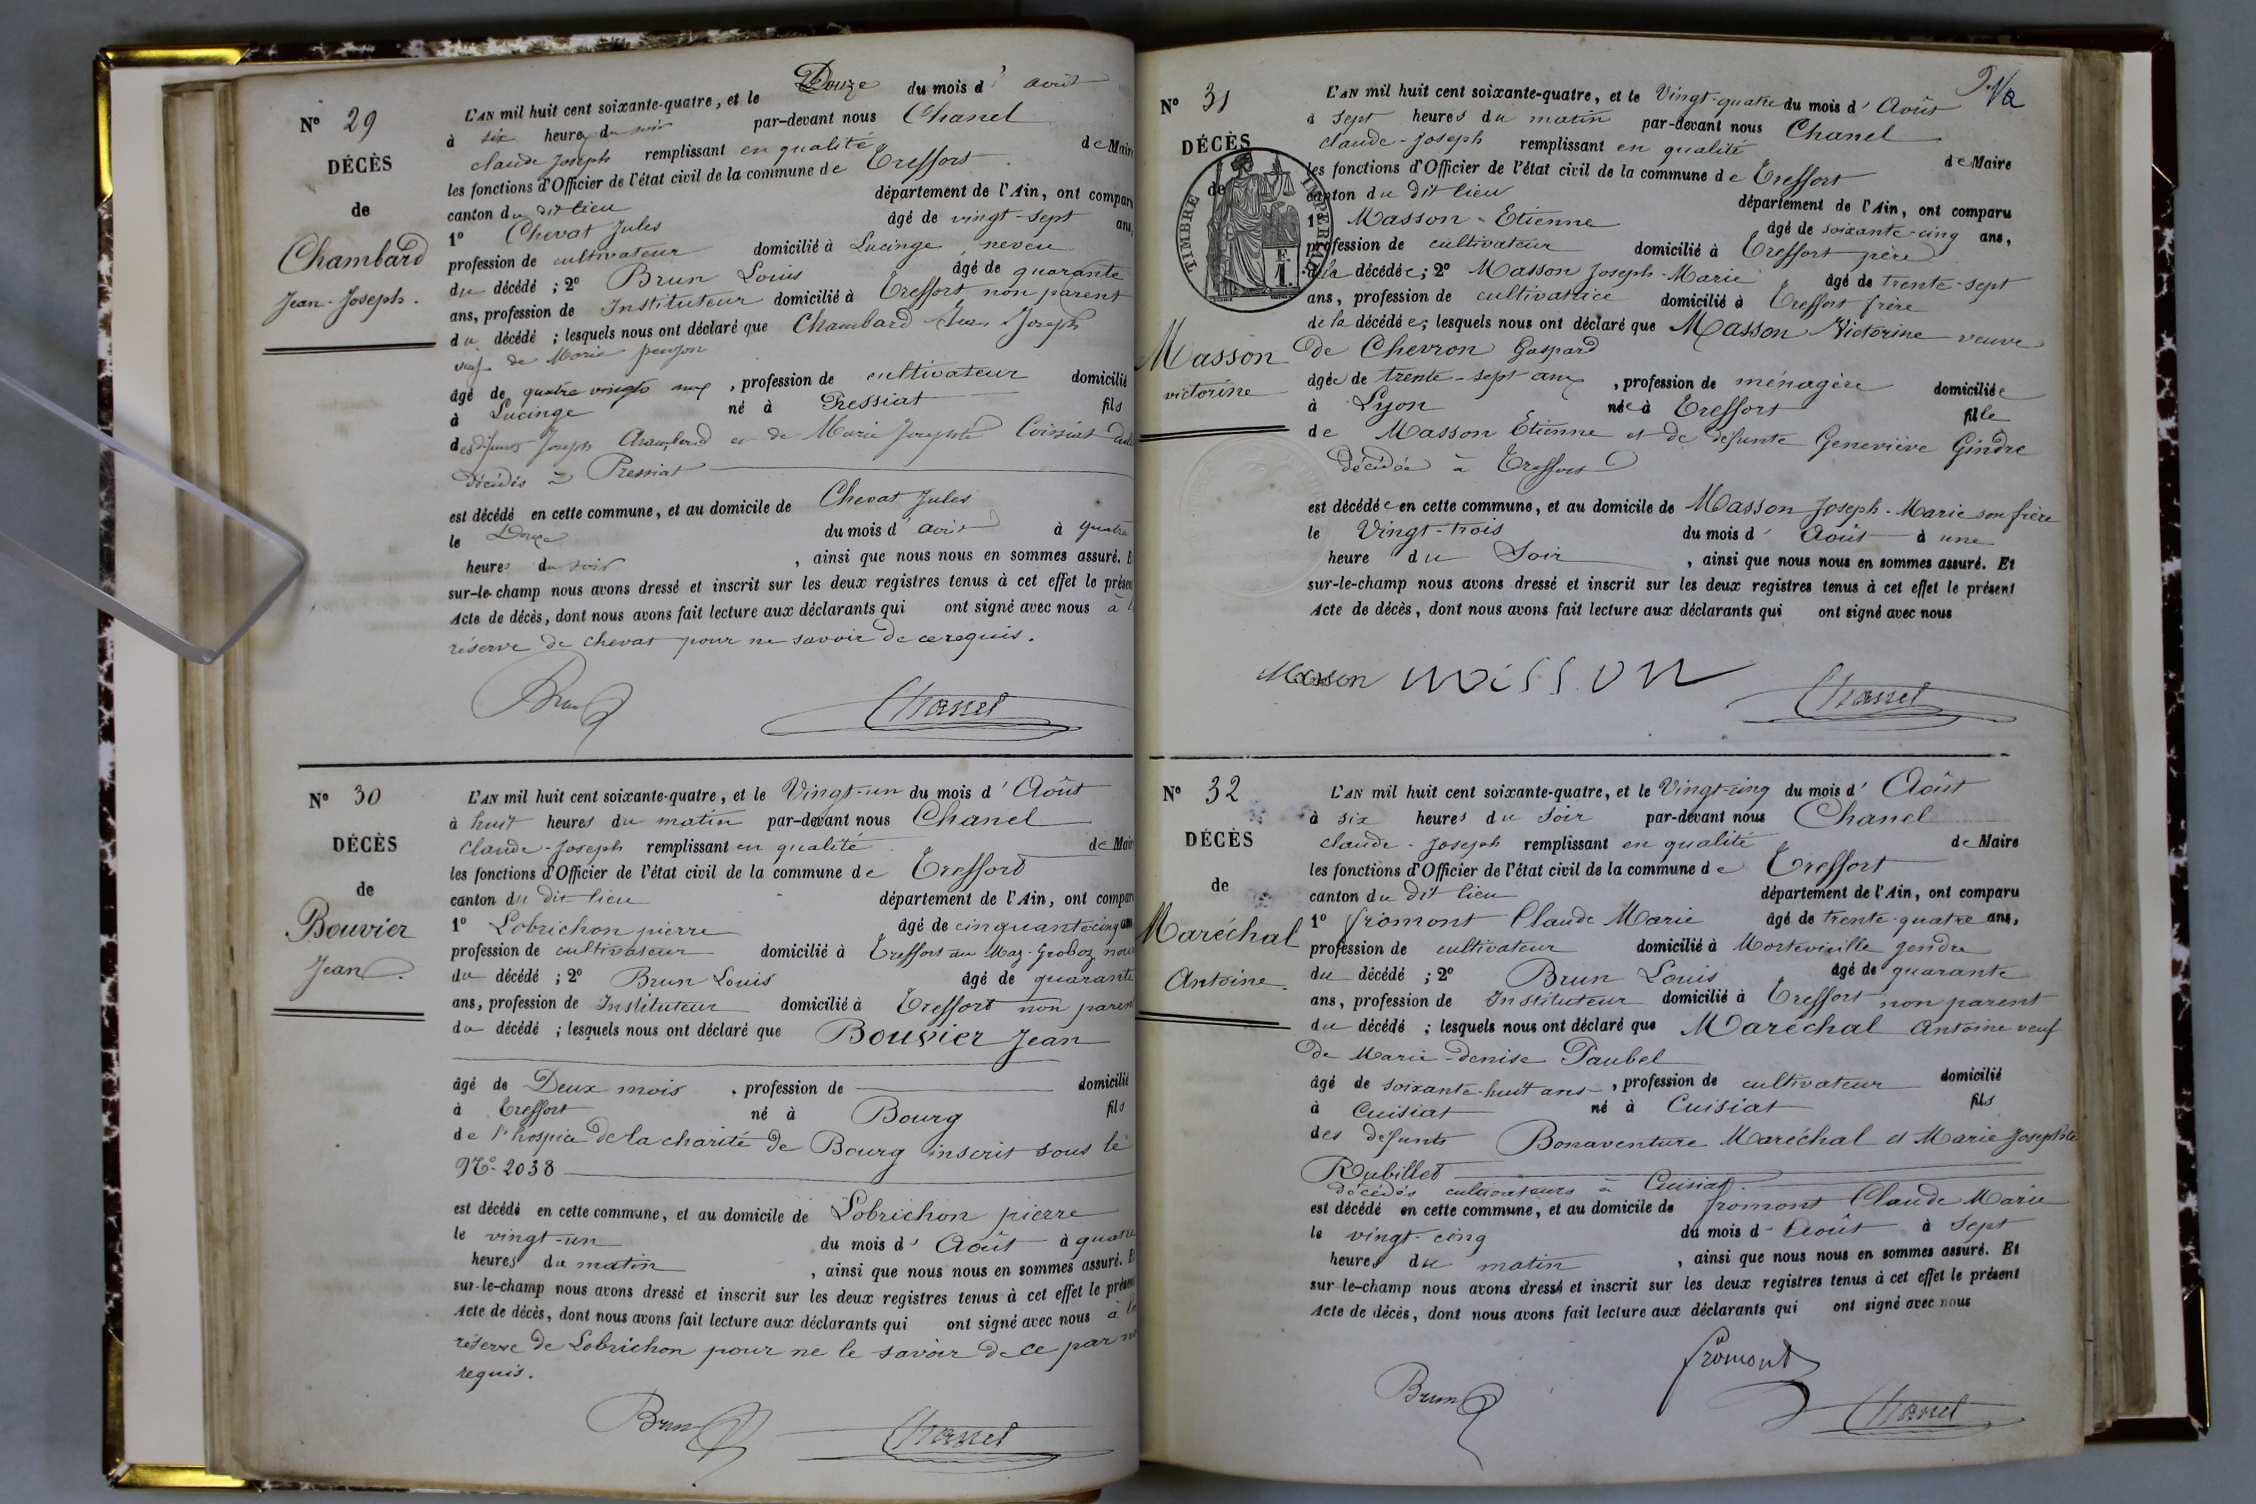 Nº 29
DÉCÈS
de
Chambard
Jean-Joseph.
L'AN mil huit cent soixante-quatre, et le Douze du mois d' août
à six heures du soir par-devant nous Chanel
claude Joseph remplissant en qualité de Maire
les fonctions d'Officier de l'état civil de la commune de Treffort
canton du dit lieu département de l'Ain, ont comparu
1º Chevat Jules âgé de vingt-sept ans,
profession de cultivateur domicilié à Lucinge neveu
du décédé ; 2º Brun Louis âgé de quarante
ans, profession de Instituteur domicilié à Treffort non parent
du décédé ; lesquels nous ont déclaré que Chambard Jean Joseph
veuf de Marie
âgé de quatre vingts ans, profession de cultivateur domicilié
à Lucinge né à Pressiat fils
des défunts Joseph Chambard et de Marie Josephte Coissiat
décédés à Pressiat
est décédé en cette commune, et au domicile de Chevat Jules
le Douze du mois d' août à quatre
heures du soir, ainsi que nous nous en sommes assuré. Et
sur-le-champ nous avons dressé et inscrit sur les deux registres tenus à cet effet le présent
Acte de décès, dont nous avons fait lecture aux déclarants qui ont signé avec nous à
réserve de Chevat pour ne savoir de ce requis.
Brun Chanel
Nº 30
DÉCÈS
de
Bouvier
Jean.
L'AN mil huit cent soixante-quatre, et le Vingt-un du mois d' Août
à huit heures du matin par-devant nous Chanel
Claude-Joseph remplissant en qualité de Maire
les fonctions d'Officier de l'état civil de la commune de Treffort
canton du dit lieu département de l'Ain, ont comparu
1º Lobrichon pierre âgé de cinquante cinq ans
profession de cultivateur domicilié à Treffort au Maz-Groboz
du décédé ; 2º Brun Louis âgé de quarante
ans, profession de Instituteur domicilié à Treffort non parent
du décédé ; lesquels nous ont déclaré que Bouvier Jean
âgé de Deux mois, profession de domicilié
à Treffort né à Bourg fils
de l'hospice de la charité de Bourg inscrit sous le
Nº 2038
est décédé en cette commune, et au domicile de Lobrichon pierre
le vingt-un du mois d' Août à quatre
heures du matin, ainsi que nous nous en sommes assuré. Et
sur-le-champ nous avons dressé et inscrit sur les deux registres tenus à cet effet le présent
Acte de décès, dont nous avons fait lecture aux déclarants qui ont signé avec nous à la
réserve de Lobrichon pour ne le savoir de ce par
requis.
Brun Chanel
Nº 31
DÉCÈS
de
TIMBRE IMPERIAL
F. 1.
Masson
victorine
L'AN mil huit cent soixante-quatre, et le Vingt-quatre du mois d' Août
à sept heures du matin par-devant nous Chanel
claude-Joseph remplissant en qualité de Maire
les fonctions d'Officier de l'état civil de la commune de Treffort
canton du dit lieu département de l'Ain, ont comparu
1º Masson Etienne âgé de soixante-cinq ans,
profession de cultivateur domicilié à Treffort père
de la décédée; 2º Masson Joseph-Marie âgé de trente-sept
ans, profession de cultivatrice domicilié à Treffort frère
de la décédée; lesquels nous ont déclaré que Masson Victorine veuve
de Chevron Gaspard
âgée de trente-sept ans, profession de ménagère domiciliée
à Lyon née à Treffort fille
de Masson Etienne et de défunte Geneviève Gindre
décédée à Treffort
est décédée en cette commune, et au domicile de Masson Joseph-Marie son frère
le Vingt-trois du mois d' Août à une
heure du Soir, ainsi que nous nous en sommes assuré. Et
sur-le-champ nous avons dressé et inscrit sur les deux registres tenus à cet effet le présent
Acte de décès, dont nous avons fait lecture aux déclarants qui ont signé avec nous
Masson masson Chanel
Nº 32
DÉCÈS
de
Maréchal
Antoine.
L'AN mil huit cent soixante-quatre, et le Vingt-cinq du mois d' Août
à six heures du Soir par-devant nous Chanel
claude-Joseph remplissant en qualité de Maire
les fonctions d'Officier de l'état civil de la commune de Treffort
canton du dit lieu département de l'Ain, ont comparu
1º fromont Claude Marie âgé de trente-quatre ans,
profession de cultivateur domicilié à Morteveille gendre
du décédé ; 2º Brun Louis âgé de quarante
ans, profession de Instituteur domicilié à Treffort non parent
du décédé ; lesquels nous ont déclaré que Maréchal Antoine veuf
de Marie-denise Paubel
âgé de soixante-huit ans, profession de cultivateur domicilié
à Cuisiat né à Cuisiat fils
des défunts Bonaventure Maréchal et Marie Josephte
Rubillet
décédés cultivateurs à Cuisiat.
est décédé en cette commune, et au domicile de fromont Claude Marie
le vingt-cinq du mois d' Août à Sept
heures du matin, ainsi que nous nous en sommes assuré. Et
sur-le-champ nous avons dressé et inscrit sur les deux registres tenus à cet effet le présent
Acte de décès, dont nous avons fait lecture aux déclarants qui ont signé avec nous
Brun fromont Chanel